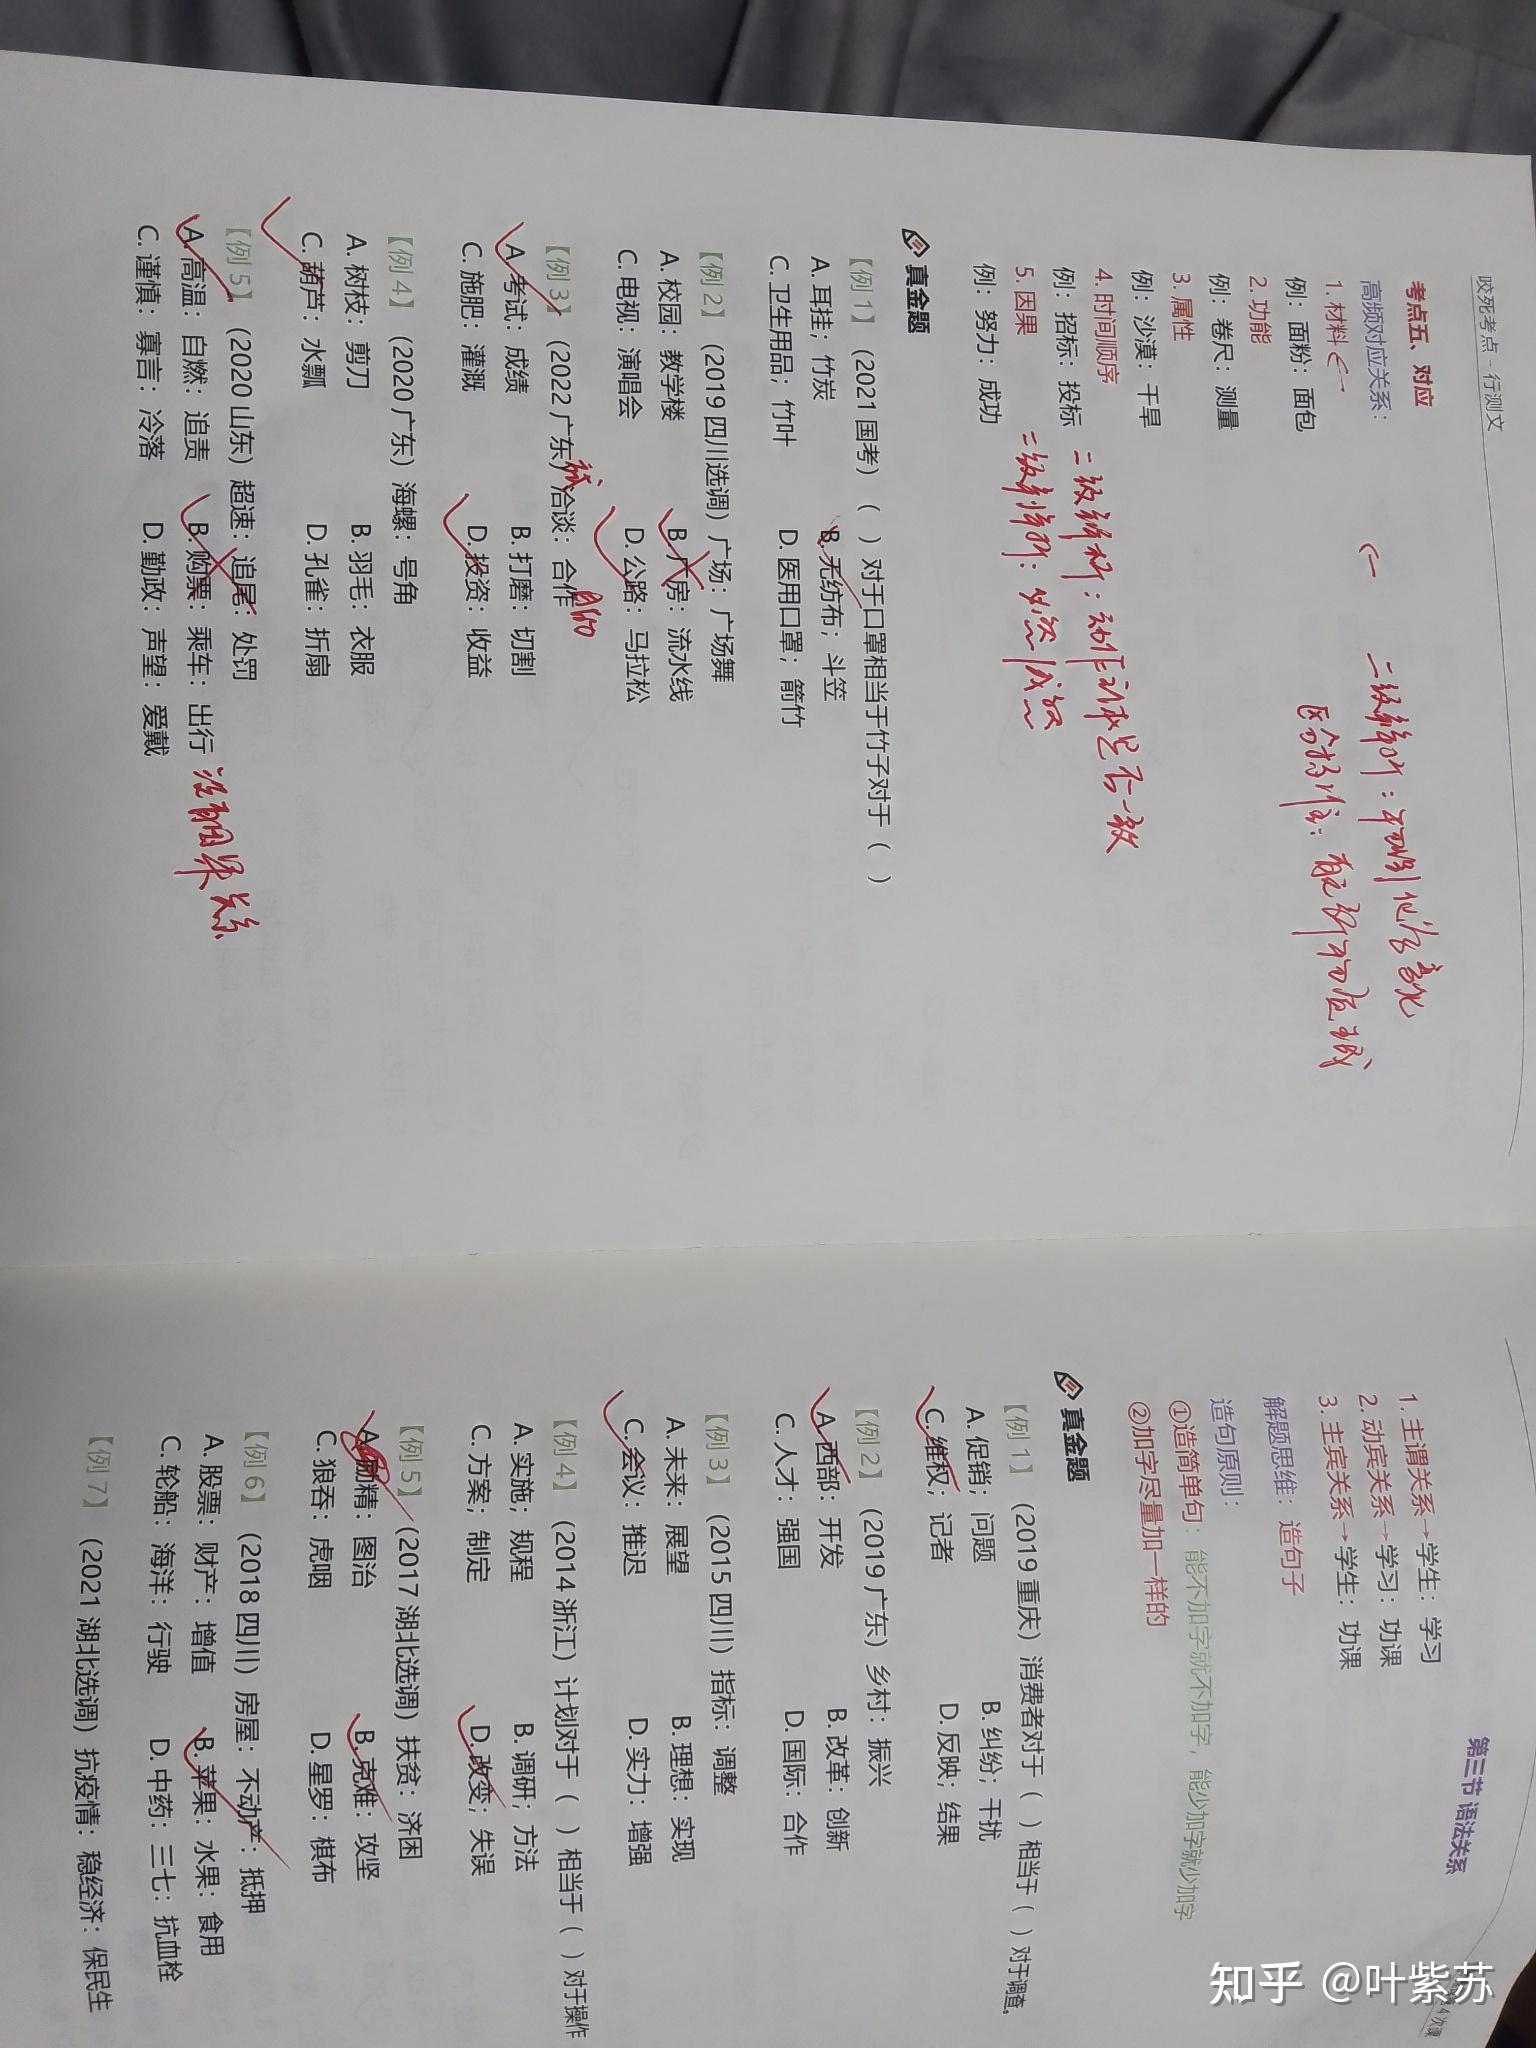 咬死考点 - 行测文
考点五、对应
高频对应关系：
1. 材料
例：面粉：面包
2. 功能
例：卷尺：测量
3. 属性
例：沙漠：干旱
4. 时间顺序
例：招标：投标
二级辨析：动作主体是否一致
5. 因果
二级辨析：必然/或然
例：努力：成功
二级辨析：物理/化学变化
区分标准：有无新物质生成
真金题
【例 1】（2021 国考）（ ）对于口罩相当于竹子对于（ ）
A. 耳挂；竹炭 B. 无纺布；斗笠
C. 卫生用品；竹叶 D. 医用口罩；箭竹
【例 2】（2019 四川选调）广场：广场舞
A. 校园：教学楼 B. 厂房：流水线
C. 电视：演唱会 D. 公路：马拉松
【例 3】（2022 广东）洽谈：合作
A. 考试：成绩 B. 打磨：切割
C. 施肥：灌溉 D. 投资：收益
【例 4】（2020 广东）海螺：号角
A. 树枝：剪刀 B. 羽毛：衣服
C. 葫芦：水瓢 D. 孔雀：折扇
【例 5】（2020 山东）超速：追尾：处罚
A. 高温：自燃：追责 B. 购票：乘车：出行 没有因果关系
C. 谨慎：寡言：冷落 D. 勤政：声望：爱戴
第三节 语法关系
1. 主谓关系→学生：学习
2. 动宾关系→学习：功课
3. 主宾关系→学生：功课
解题思维：造句子
造句原则：
①造简单句：能不加字就不加字，能少加字就少加字
②加字尽量加一样的
真金题
【例 1】（2019 重庆）消费者对于（ ）相当于（ ）对于调查。
A. 促销；问题 B. 纠纷；干扰
C. 维权；记者 D. 反映；结果
【例 2】（2019 广东）乡村：振兴
A. 西部：开发 B. 改革：创新
C. 人才：强国 D. 国际：合作
【例 3】（2015 四川）指标：调整
A. 未来：展望 B. 理想：实现
C. 会议：推迟 D. 实力：增强
【例 4】（2014 浙江）计划对于（ ）相当于（ ）对于操作
A. 实施；规程 B. 调研；方法
C. 方案；制定 D. 改变；失误
【例 5】（2017 湖北选调）扶贫：济困
A. 励精：图治 B. 克难：攻坚
C. 狼吞：虎咽 D. 星罗：棋布
【例 6】（2018 四川）房屋：不动产：抵押
A. 股票：财产：增值 B. 苹果：水果：食用
C. 轮船：海洋：行驶 D. 中药：三七：抗血栓
【例 7】（2021 湖北选调）抗疫情：稳经济：保民生
知乎 @叶紫苏